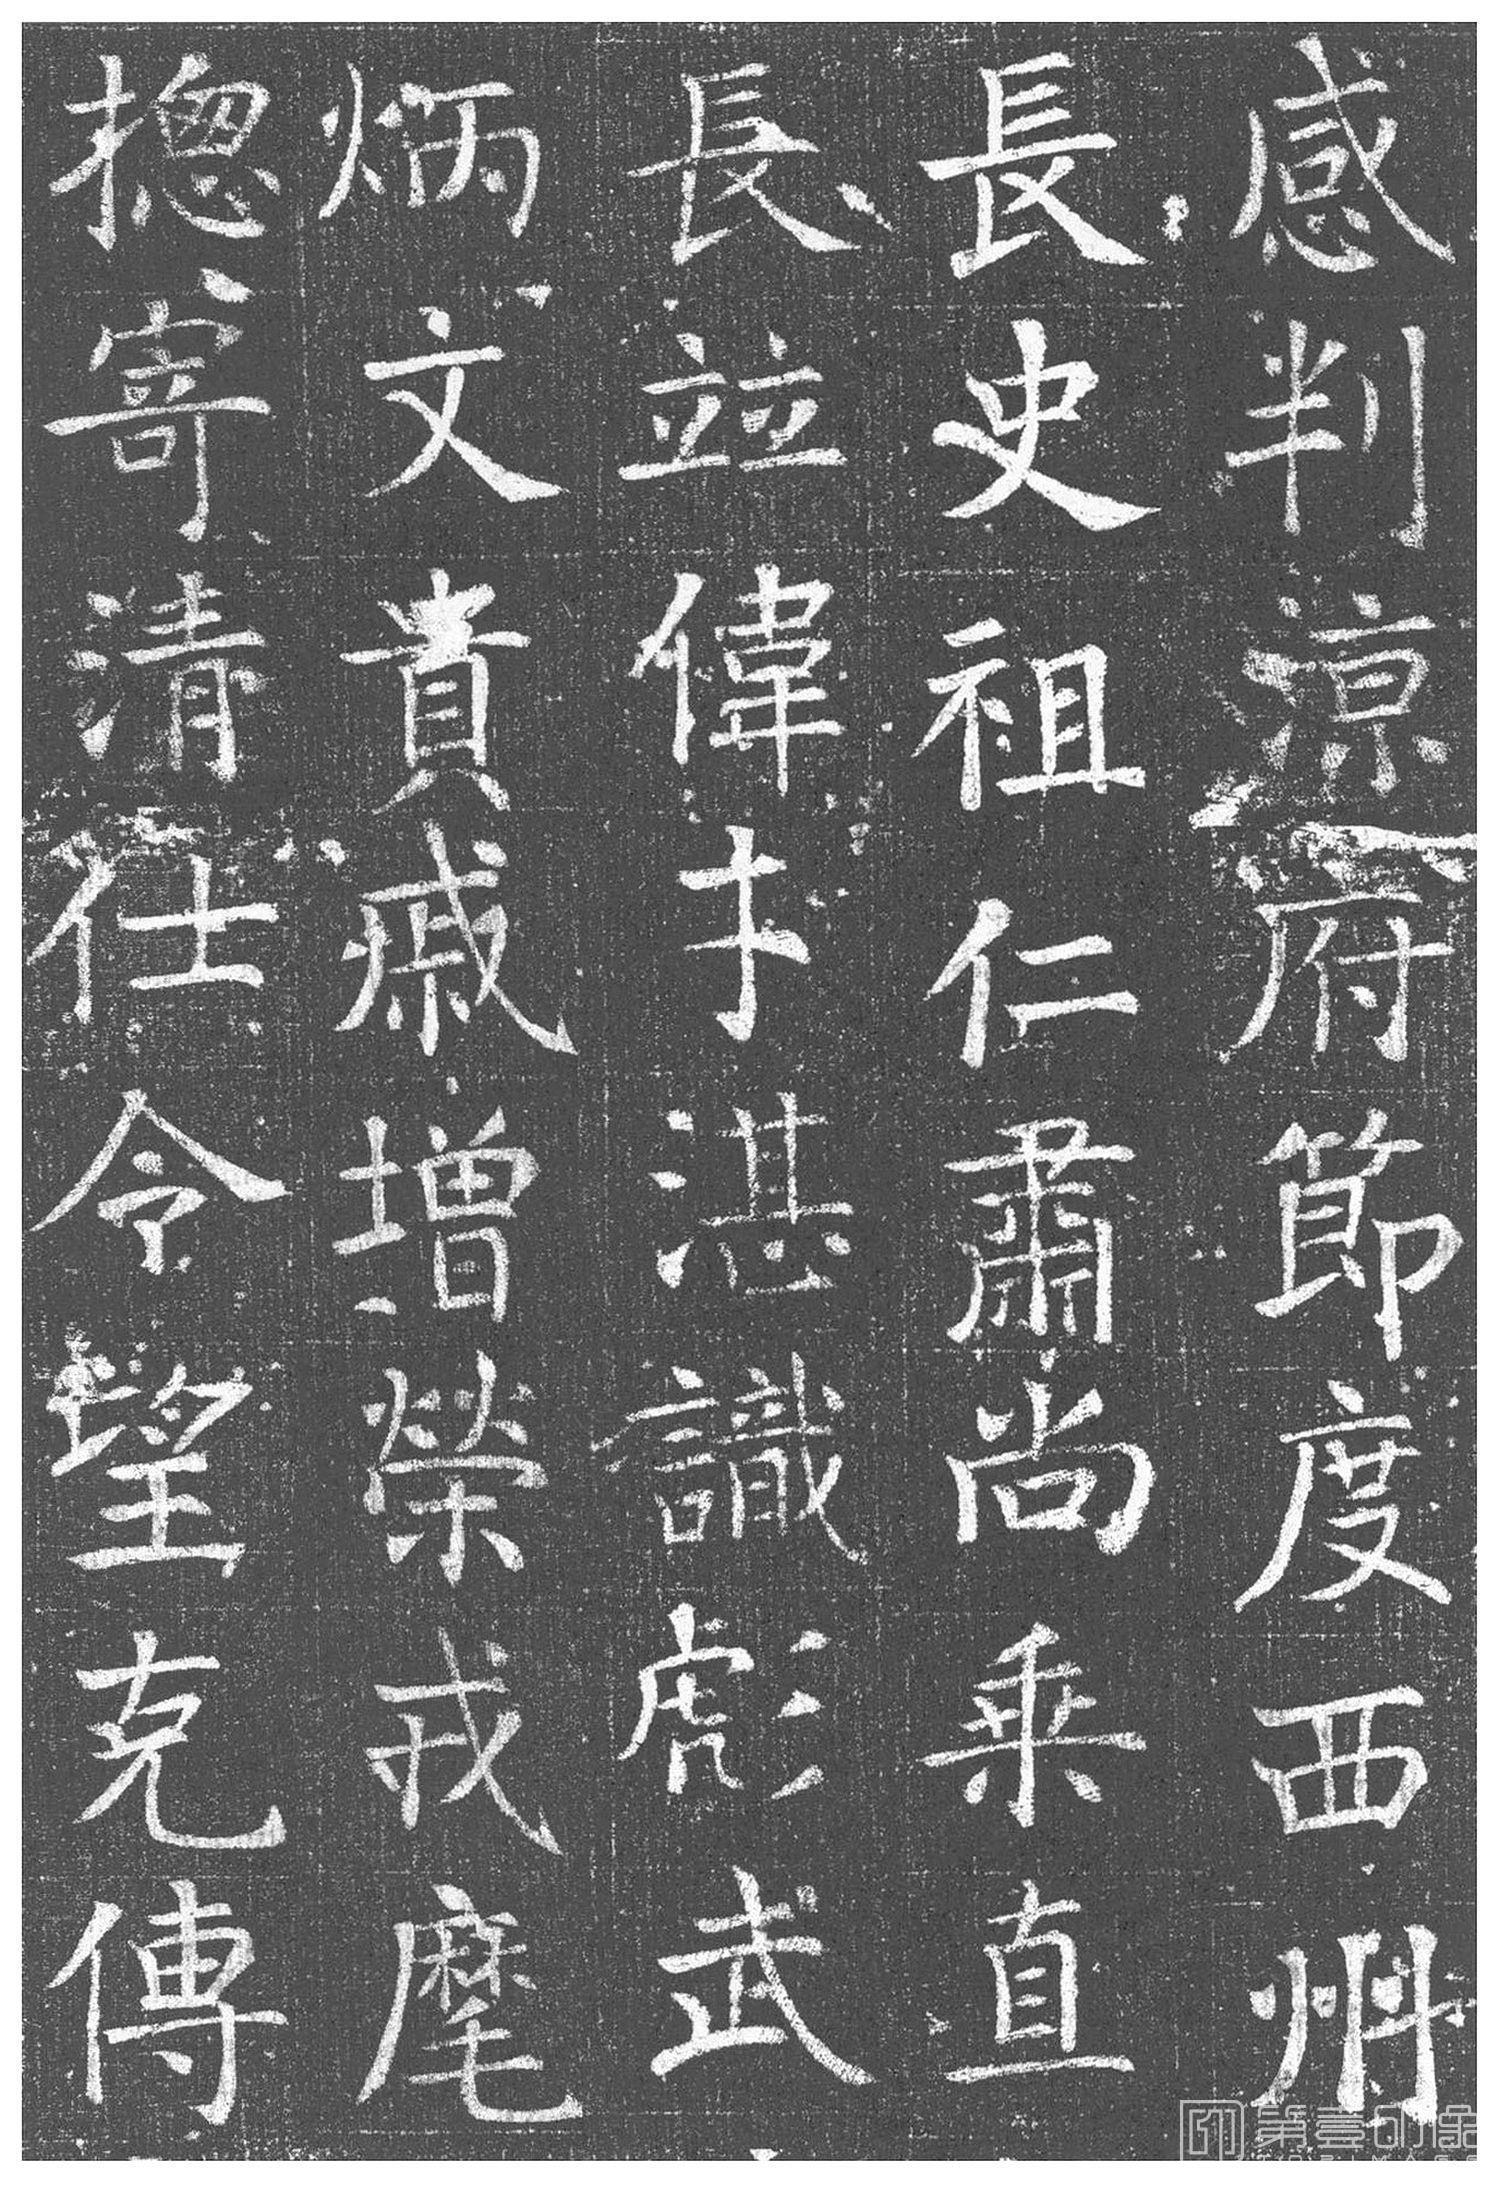 感判涼府節度西州
長史祖仁肅尚乗直
長並偉才湛識彪武
炳文貴戚増榮戎麾
揔寄清任令望克傳
第壹印像